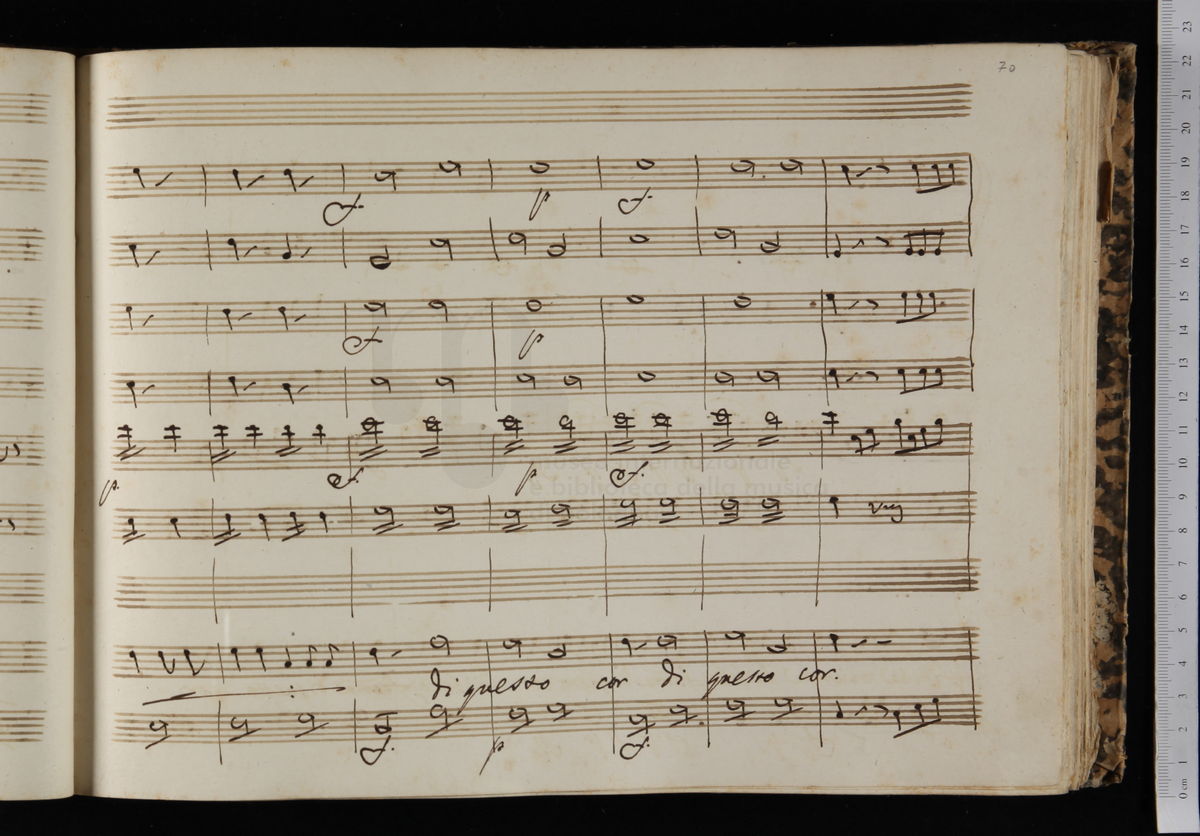 70
f
p
f
f
p
p
f
p
f
museo internazionale
e biblioteca della musica
di questo cor di questo cor.
f
p
f
23
22
21
20
19
18
17
16
15
14
13
12
11
10
9
8
7
6
5
4
3
2
1
0 cm